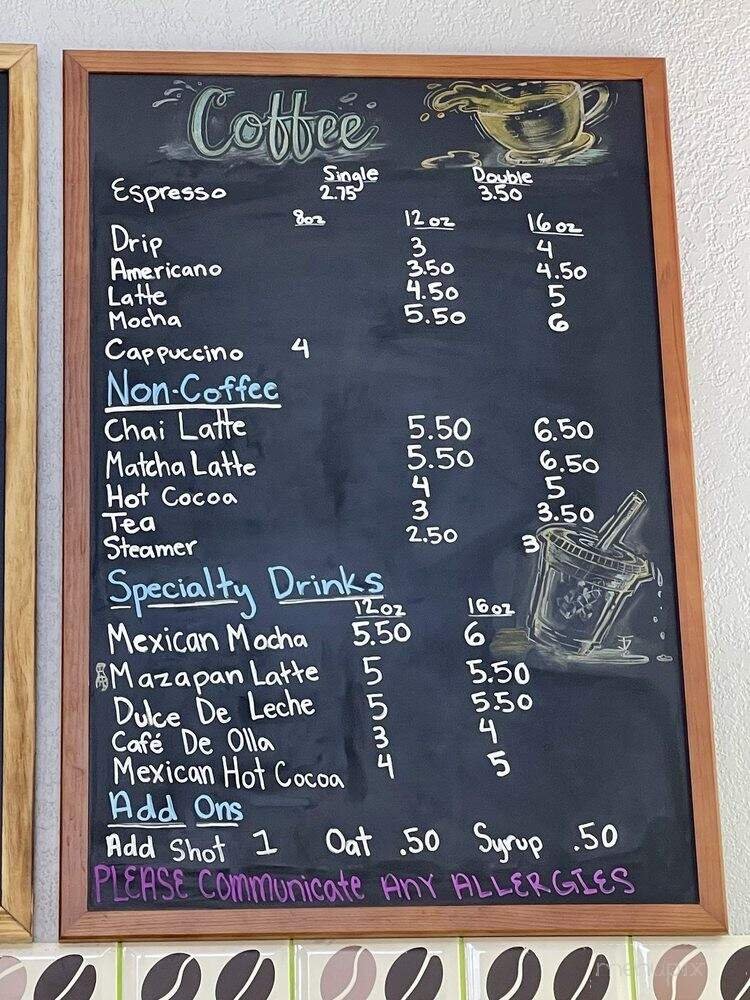 Coffee
Single Double
Espresso 2.75 3.50
8oz 12 oz 16 oz
Drip 3 4
Americano 3.50 4.50
Latte 4.50 5
Mocha 5.50 6
Cappuccino 4
Non-Coffee
Chai Latte 5.50 6.50
Matcha Latte 5.50 6.50
Hot Cocoa 4 5
Tea 3 3.50
Steamer 2.50 3
Specialty Drinks
12oz 16oz
Mexican Mocha 5.50 6
Mazapan Latte 5 5.50
Dulce De Leche 5 5.50
Café De Olla 3 4
Mexican Hot Cocoa 4 5
Add Ons
Add Shot 1 Oat .50 Syrup .50
PLEASE Communicate ANY ALLERGIES
menupix